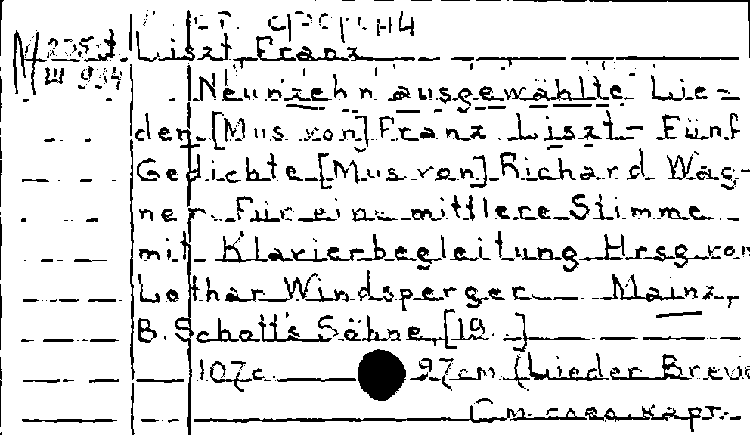 Liszt, Franz
Neunzehn ausgewählte Lie-
der [Mus von] Franz Liszt - Fünf
Gedichte [Mus von] Richard Wag-
ner Für eine mittlere Stimme
mit Klavierbegleitung Hrsg von
Lothar Windsperger Mainz,
B. Schott's Söhne, [19 ]
107c 27cm (Lieder Brevie
См. след. карт.